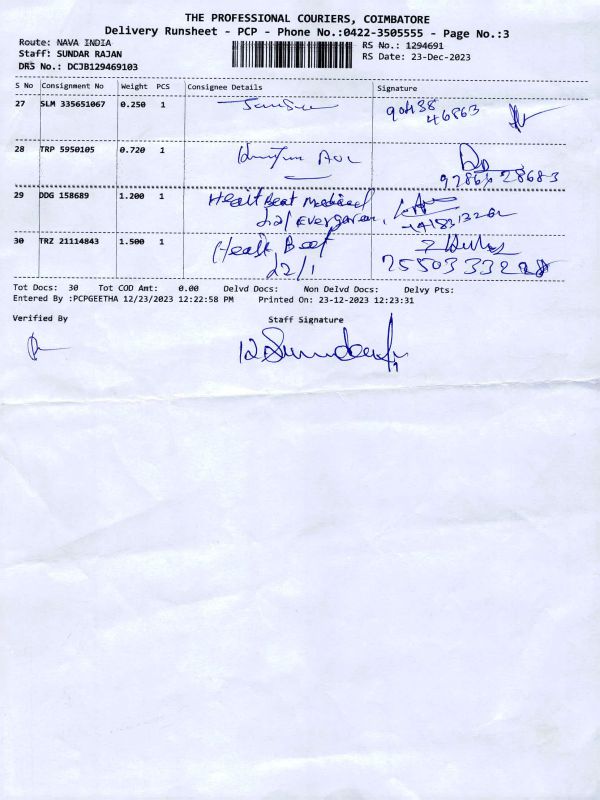 THE PROFESSIONAL COURIERS, COIMBATORE
Delivery Runsheet - PCP - Phone No.:0422-3505555 - Page No.:3
Route: NAVA INDIA
RS No.: 1294691
Staff: SUNDAR RAJAN
RS Date: 23-Dec-2023
DRS No.: DCJB129469103
S No Consignment No Weight PCS Consignee Details Signature
27 SLM 335651067 0.250 1 90438
46863
28 TRP 5950105 0.720 1
97867 28683
29 DDG 158689 1.200 1 Heart Beat Medical
22/ Evergreen,
30 TRZ 21114843 1.500 1 Heart Beat
22/1
Tot Docs: 30 Tot COD Amt: 0.00 Delvd Docs: Non Delvd Docs: Delvy Pts:
Entered By :PCPGEETHA 12/23/2023 12:22:58 PM Printed On: 23-12-2023 12:23:31
Verified By Staff Signature